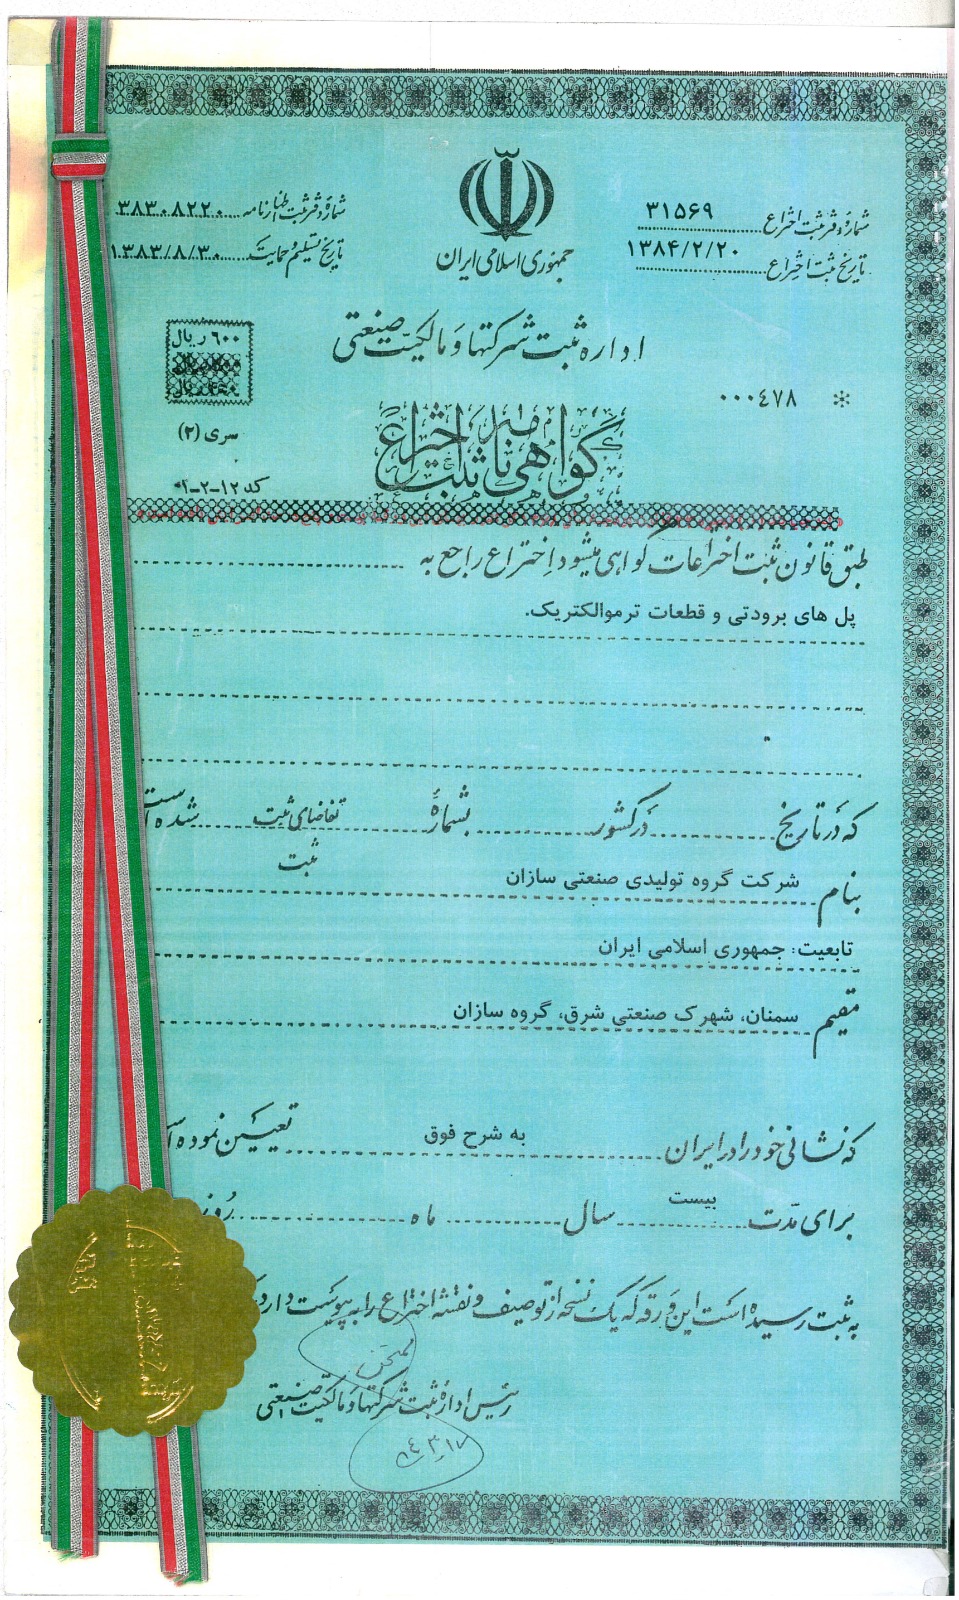 جمهوری اسلامی ایران
شمارهٔ دفتر ثبت اختراع ۳۱۵۶۹
تاریخ ثبت اختراع ۱۳۸۴/۲/۲۰
شمارهٔ دفتر ثبت اظهارنامه ۳۸۳۰۸۲۲۰
تاریخ تسلیم و حمایت ۱۳۸۳/۸/۳۰
اداره ثبت شرکتها و مالکیت صنعتی
۶۰۰ ریال
۰۰۰۴۷۸
سری (۲)
گواهی نامه ثبت اختراع
کد ۱۲-۲-۱۰
طبق قانون ثبت اختراعات گواهی میشود اختراع راجع به
پل های برودتی و قطعات ترموالکتریک.
که در تاریخ در کشور بشمارهٔ تقاضای ثبت شده است
ثبت
بنام شرکت گروه تولیدی صنعتی سازان
تابعیت: جمهوری اسلامی ایران
مقیم سمنان، شهرک صنعتی شرق، گروه سازان
که نشانی خود را در ایران به شرح فوق تعیین نموده
برای مدت بیست سال ماه روز
به ثبت رسیده است این ورقه که یک نسخه از توصیف و نقشه اختراع را به پیوست دارد
رئیس اداره ثبت شرکتها و مالکیت صنعتی